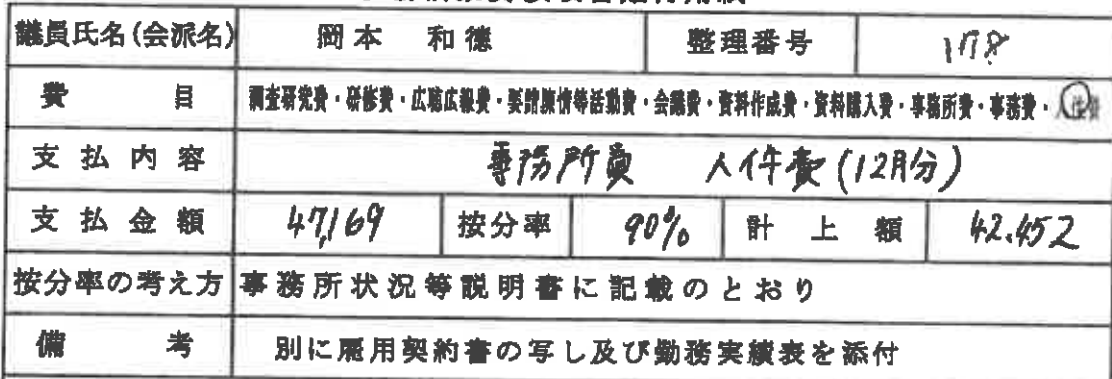 議員氏名(会派名) 岡本 和徳 整理番号 178
費目 調査研究費・研修費・広聴広報費・要請陳情等活動費・会議費・資料作成費・資料購入費・事務所費・事務費・人件費
支払内容 事務所員 人件費(12月分)
支払金額 47,169 按分率 90% 計上額 42,452
按分率の考え方 事務所状況等説明書に記載のとおり
備考 別に雇用契約書の写し及び勤務実績表を添付